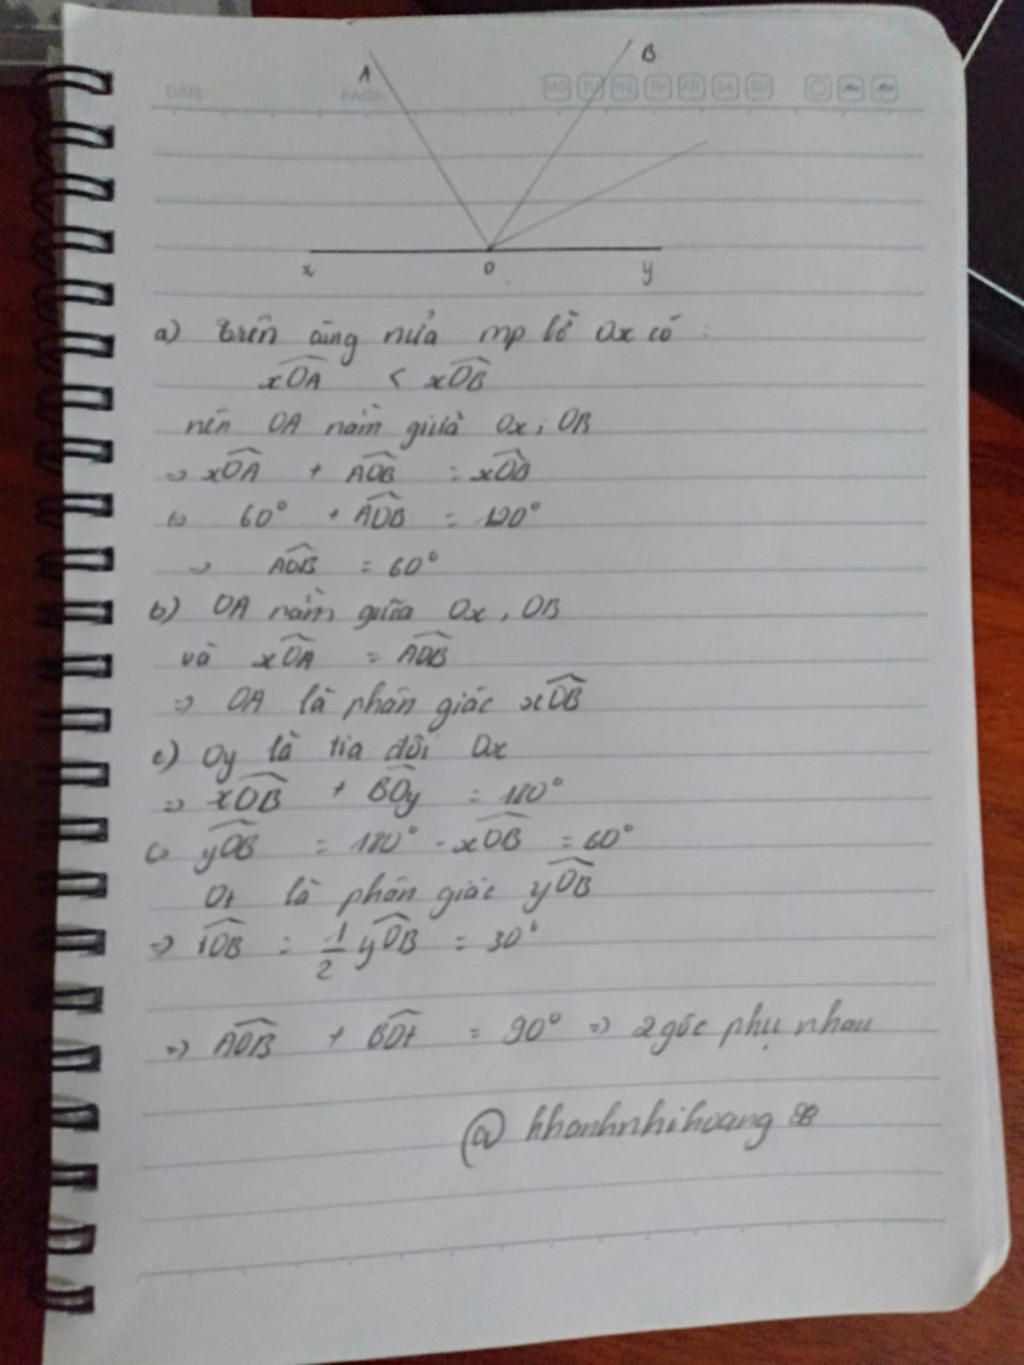 A
B
DATE
PAGE:
MO TU WE TH FRI SA SU
x
O
y
a) Trên cùng nửa mp bờ Ox có :
xOA < xOB
nên OA nằm giữa Ox, OB
=> xOA + AOB = xOB
<=> 60° + AOB = 120°
=> AOB = 60°
b) OA nằm giữa Ox, OB
và xOA = AOB
=> OA là phân giác xOB
c) Oy là tia đối Ox
=> xOB + BOy = 180°
<=> yOB = 180° - xOB = 60°
Ot là phân giác yOB
=> tOB = 1/2 yOB = 30°
=> AOB + BOt = 90° => 2 góc phụ nhau
@ khanhnhihoang